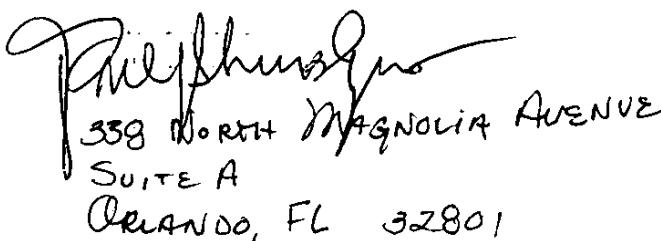 338 NORTH MAGNOLIA AVENUE
SUITE A
ORLANDO, FL 32801